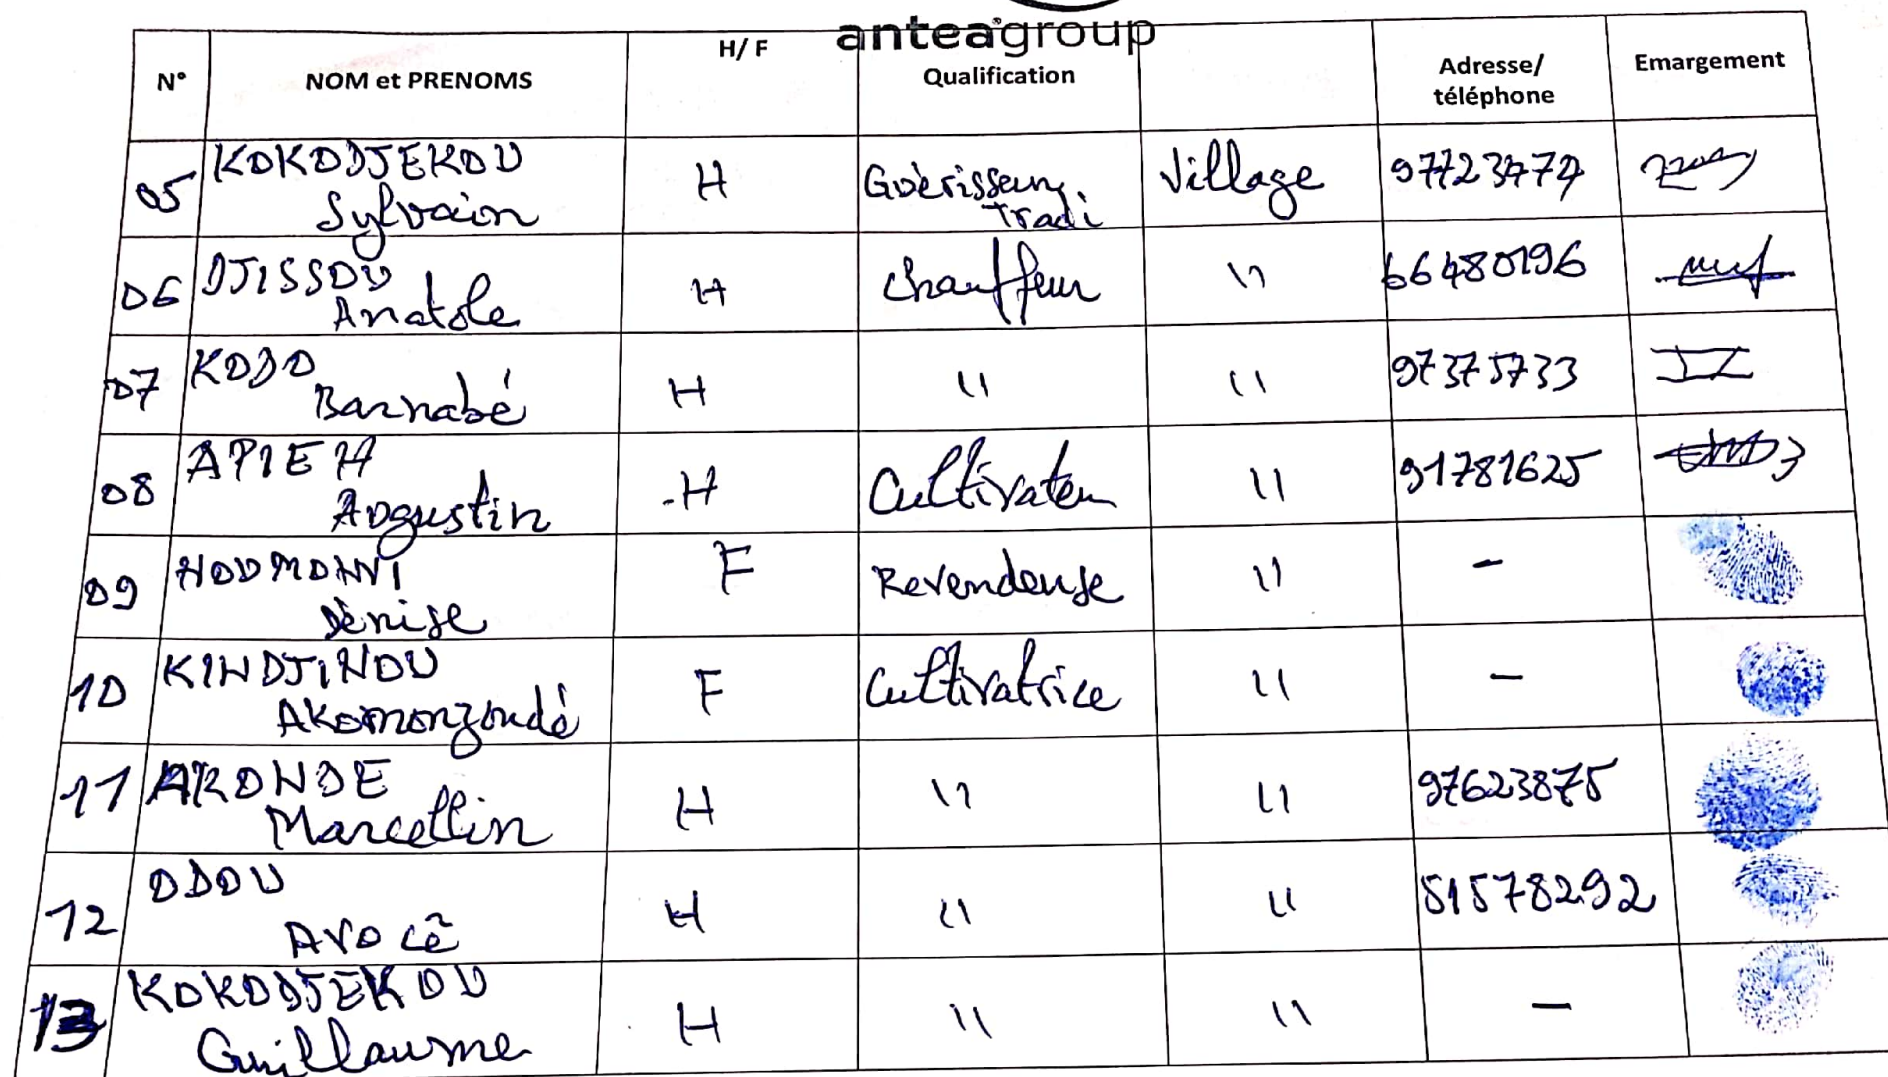 anteagroup
N° NOM et PRENOMS H/ F Qualification Adresse/ téléphone Emargement
05 KOKODJEKOU Sylvain H Guèrisseur Tradi Village 97723474
06 DJISSOU Anatole H Chauffeur '' 66480196
07 KODO Barnabé H '' '' 97375733
08 APIEH Augustin H Cultivateur '' 91781625
09 HOUMONVI Dènise F Revendeuse '' -
10 KINDJINOU Akomonzoudé F Cultivatrice '' -
11 AKONDE Marcellin H '' '' 97623875
12 ODOU Avocê H '' '' 51578292
13 KOKODJEKOU Guillaume H '' '' -